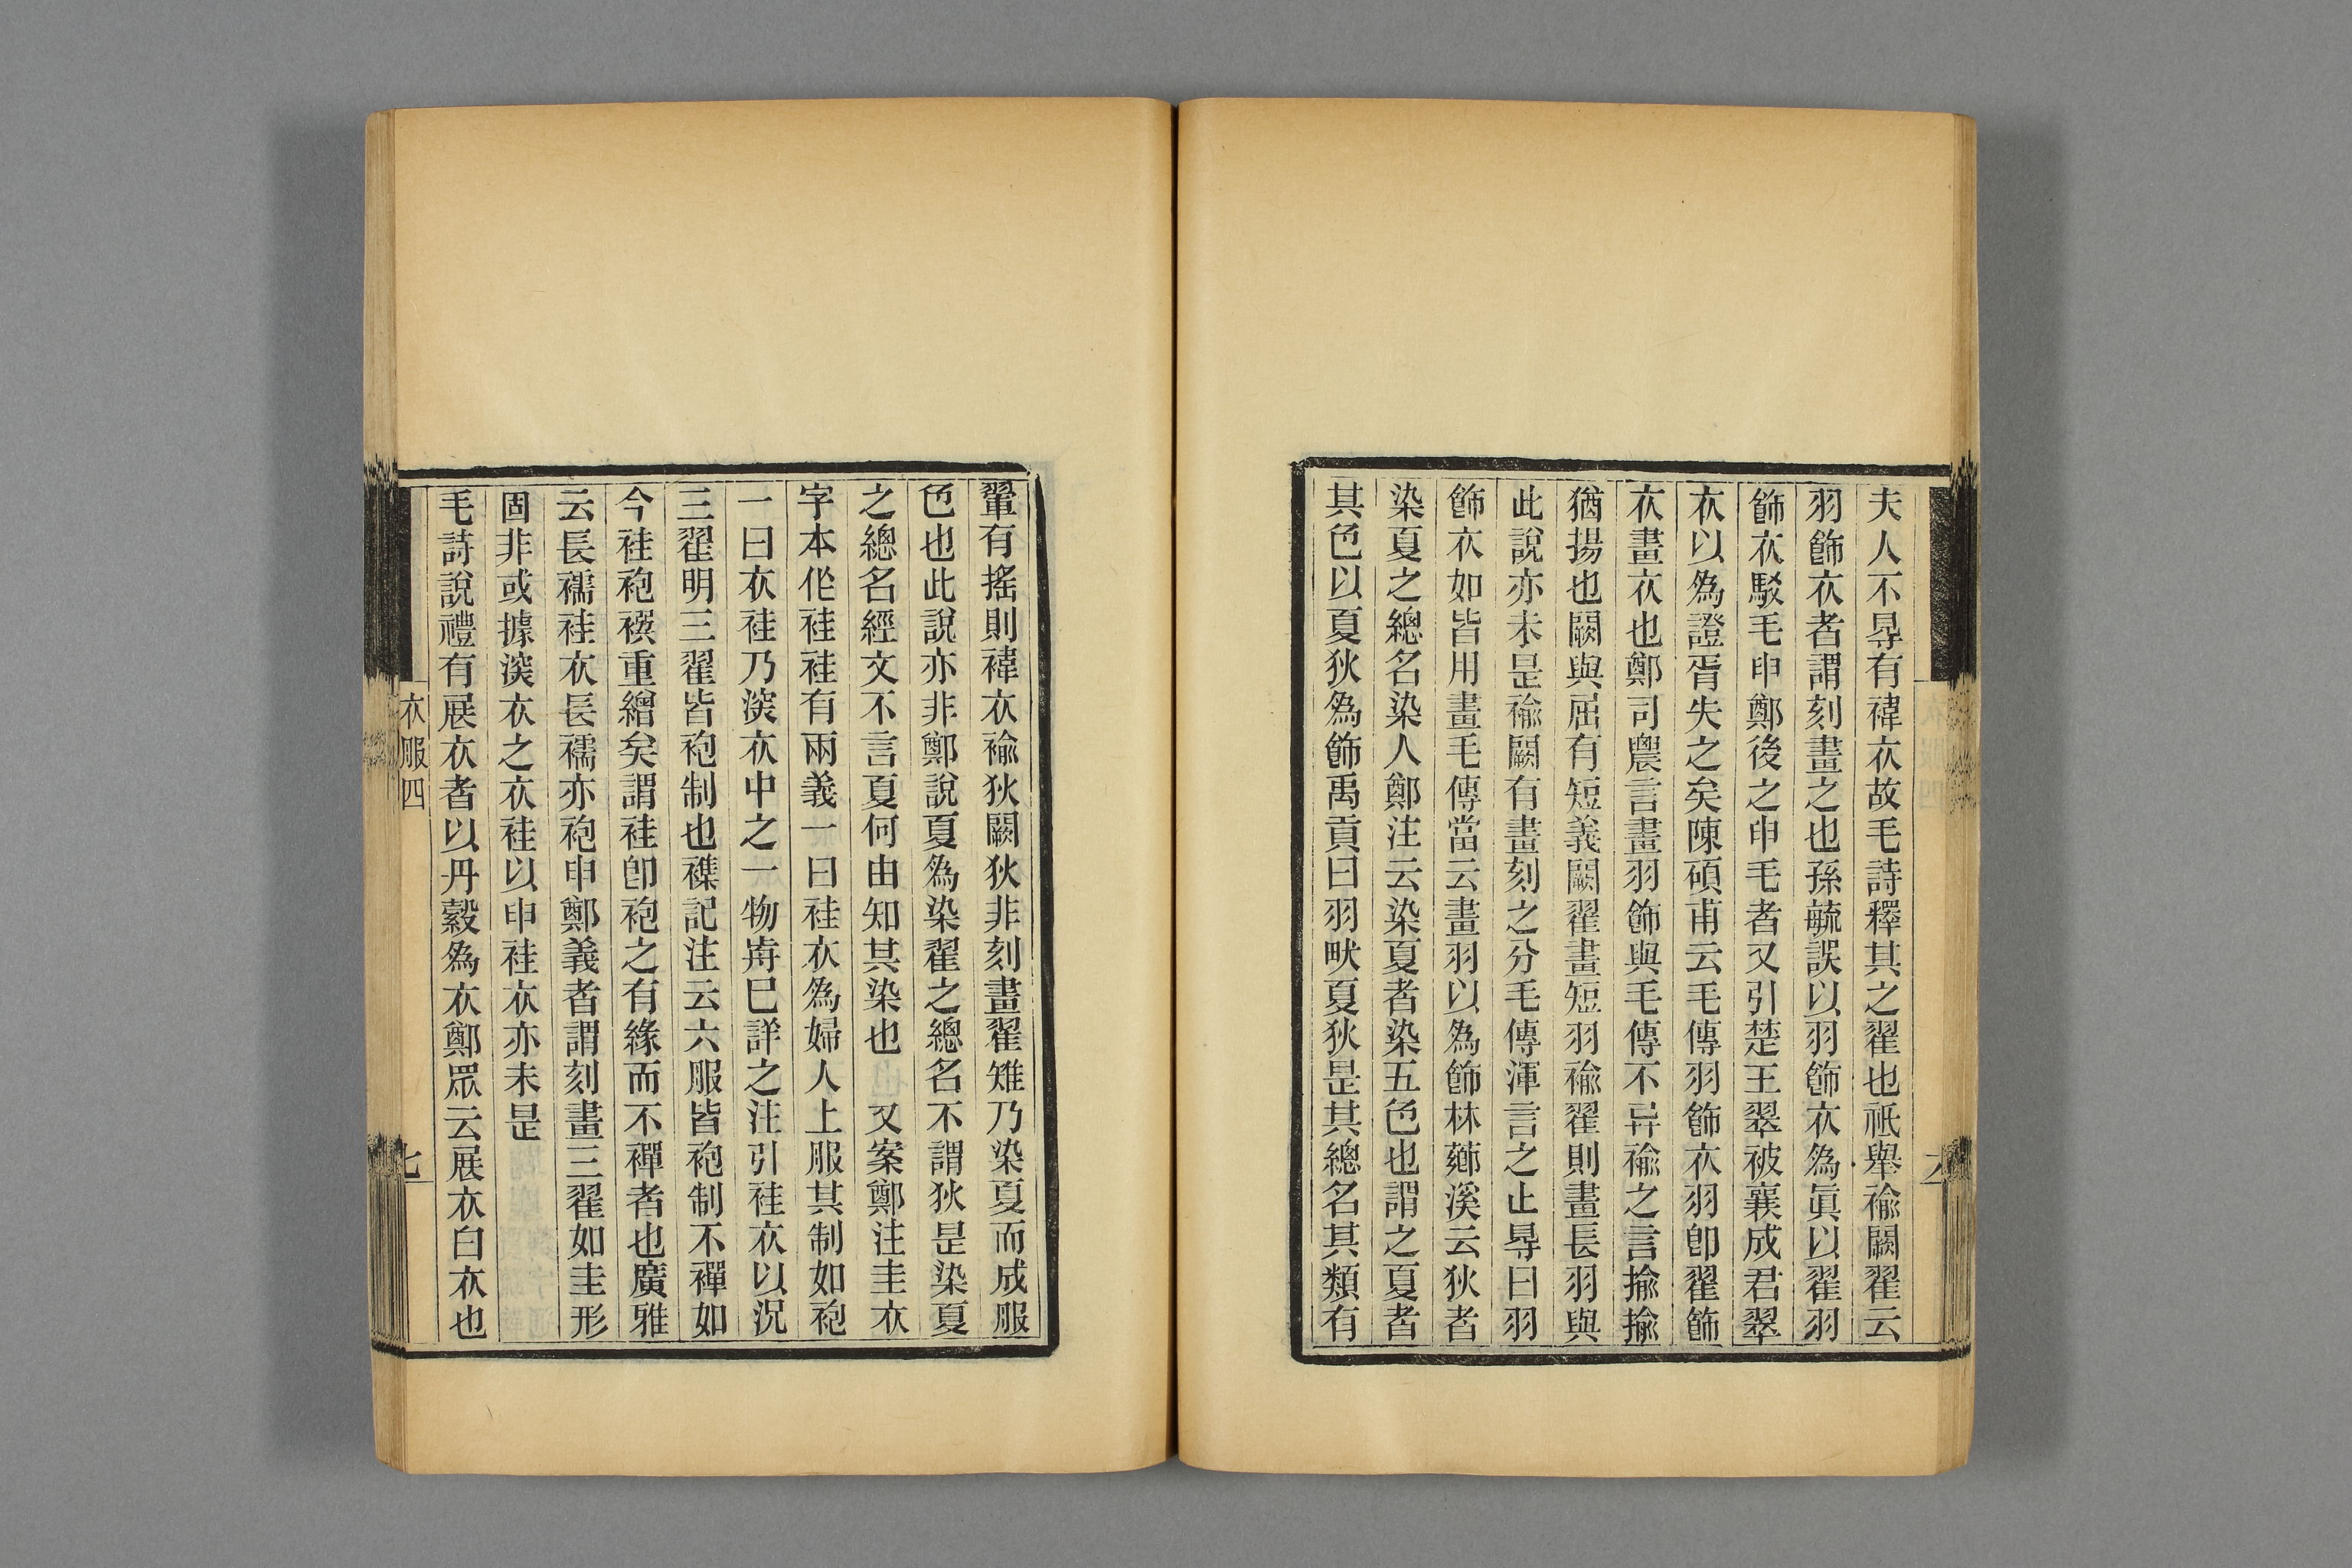 夫人不㝵有褘衣故毛詩釋其之翟也祇舉褕闕翟云
羽飾衣者謂刻畫之也孫毓誤以羽飾衣為眞以翟羽
飾衣駁毛申鄭後之申毛者又引楚王翠被襄成君翠
衣以為證胥失之矣陳碩甫云毛傳羽飾衣羽卽翟飾
衣畫衣也鄭司農言畫羽飾與毛傳不异褕之言揄揄
猶揚也闕與屈有短義闕翟畫短羽褕翟則畫長羽與
此說亦未是褕闕有畫刻之分毛傳渾言之止㝵曰羽
飾衣如皆用畫毛傳當云畫羽以為飾林薌溪云狄者
染夏之總名染人鄭注云染夏者染五色也謂之夏者
其色以夏狄為飾禹貢曰羽畎夏狄是其總名其類有
翬有搖則褘衣褕狄闕狄非刻畫翟雉乃染夏而成服
色也此說亦非鄭說夏為染翟之總名不謂狄是染夏
之總名經文不言夏何由知其染也 又案鄭注圭衣
字本作袿袿有兩義一曰袿衣為婦人上服其制如袍
一曰衣袿乃深衣中之一物歬已詳之注引袿衣以況
三翟明三翟皆袍制也襍記注云六服皆袍制不襌如
今袿袍襈重繒矣謂袿卽袍之有緣而不襌者也廣雅
云長襦袿衣長襦亦袍申鄭義者謂刻畫三翟如圭形
固非或據深衣之衣袿以申袿衣亦未是
毛詩說禮有展衣者以丹縠為衣鄭眾云展衣白衣也
衣服四
七